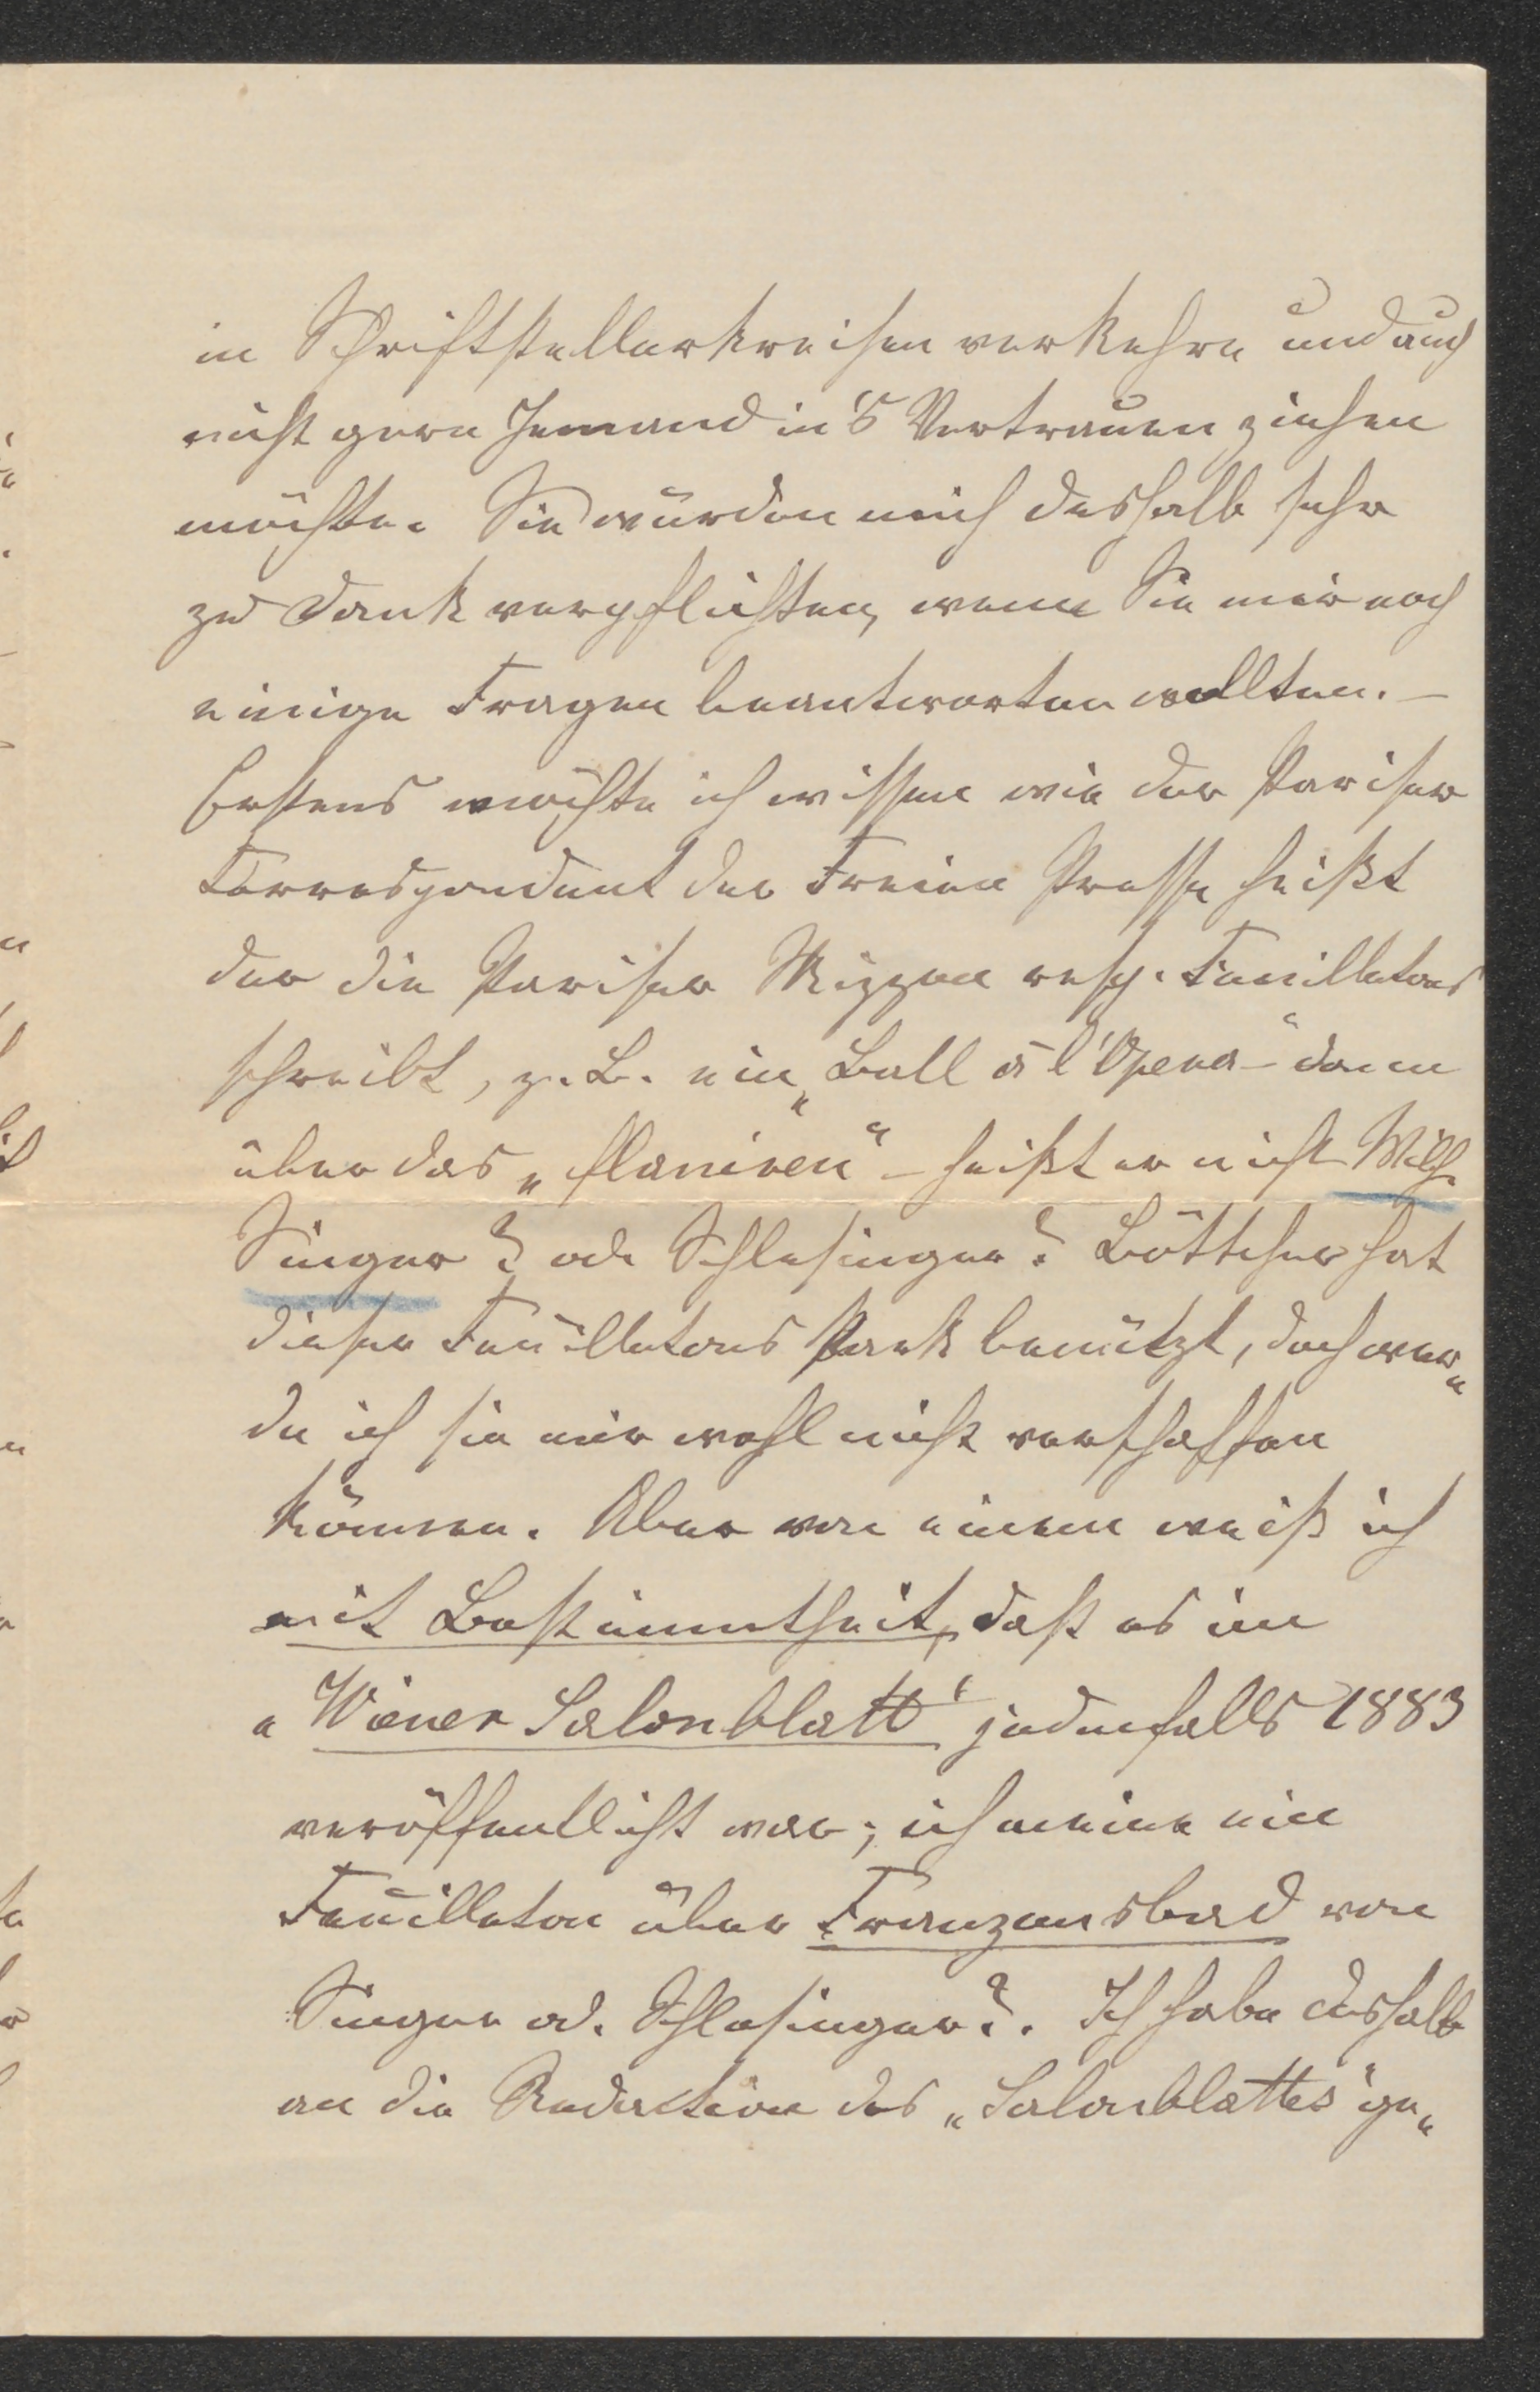 in Schriftstellerkreisen verkehre und auch
nicht gern Jemand in's Vertrauen ziehen
möchte. Sie würden mich deshalb sehr
zu Dank verpflichten, wenn Sie mir noch
einige Fragen beantworten wollten. –
Erstens möchte ich wissen wie der Pariser
Correspondent der Freien Presse heißt
der die Pariser Skizzen resp. Feuilletons
schreibt, z. B. ein „Ball à l'Opera –" dann
über das „flaniren" – heißt er nicht Wilh.
Singer? od. Schlesinger? Böttcher hat
diese Feuilletons stark benützt, doch wer„
de ich sie mir wohl nicht verschaffen
können. Aber von einem weiß ich
mit Bestimmtheit, daß es im
„Wiener Salonblatt" jedenfalls 1883
veröffentlicht war; ich meine ein
Feuilleton über Franzensbad von
Singer od. Schlesinger?. Ich habe deshalb
an die Redaction des „Salonblattes" ge„